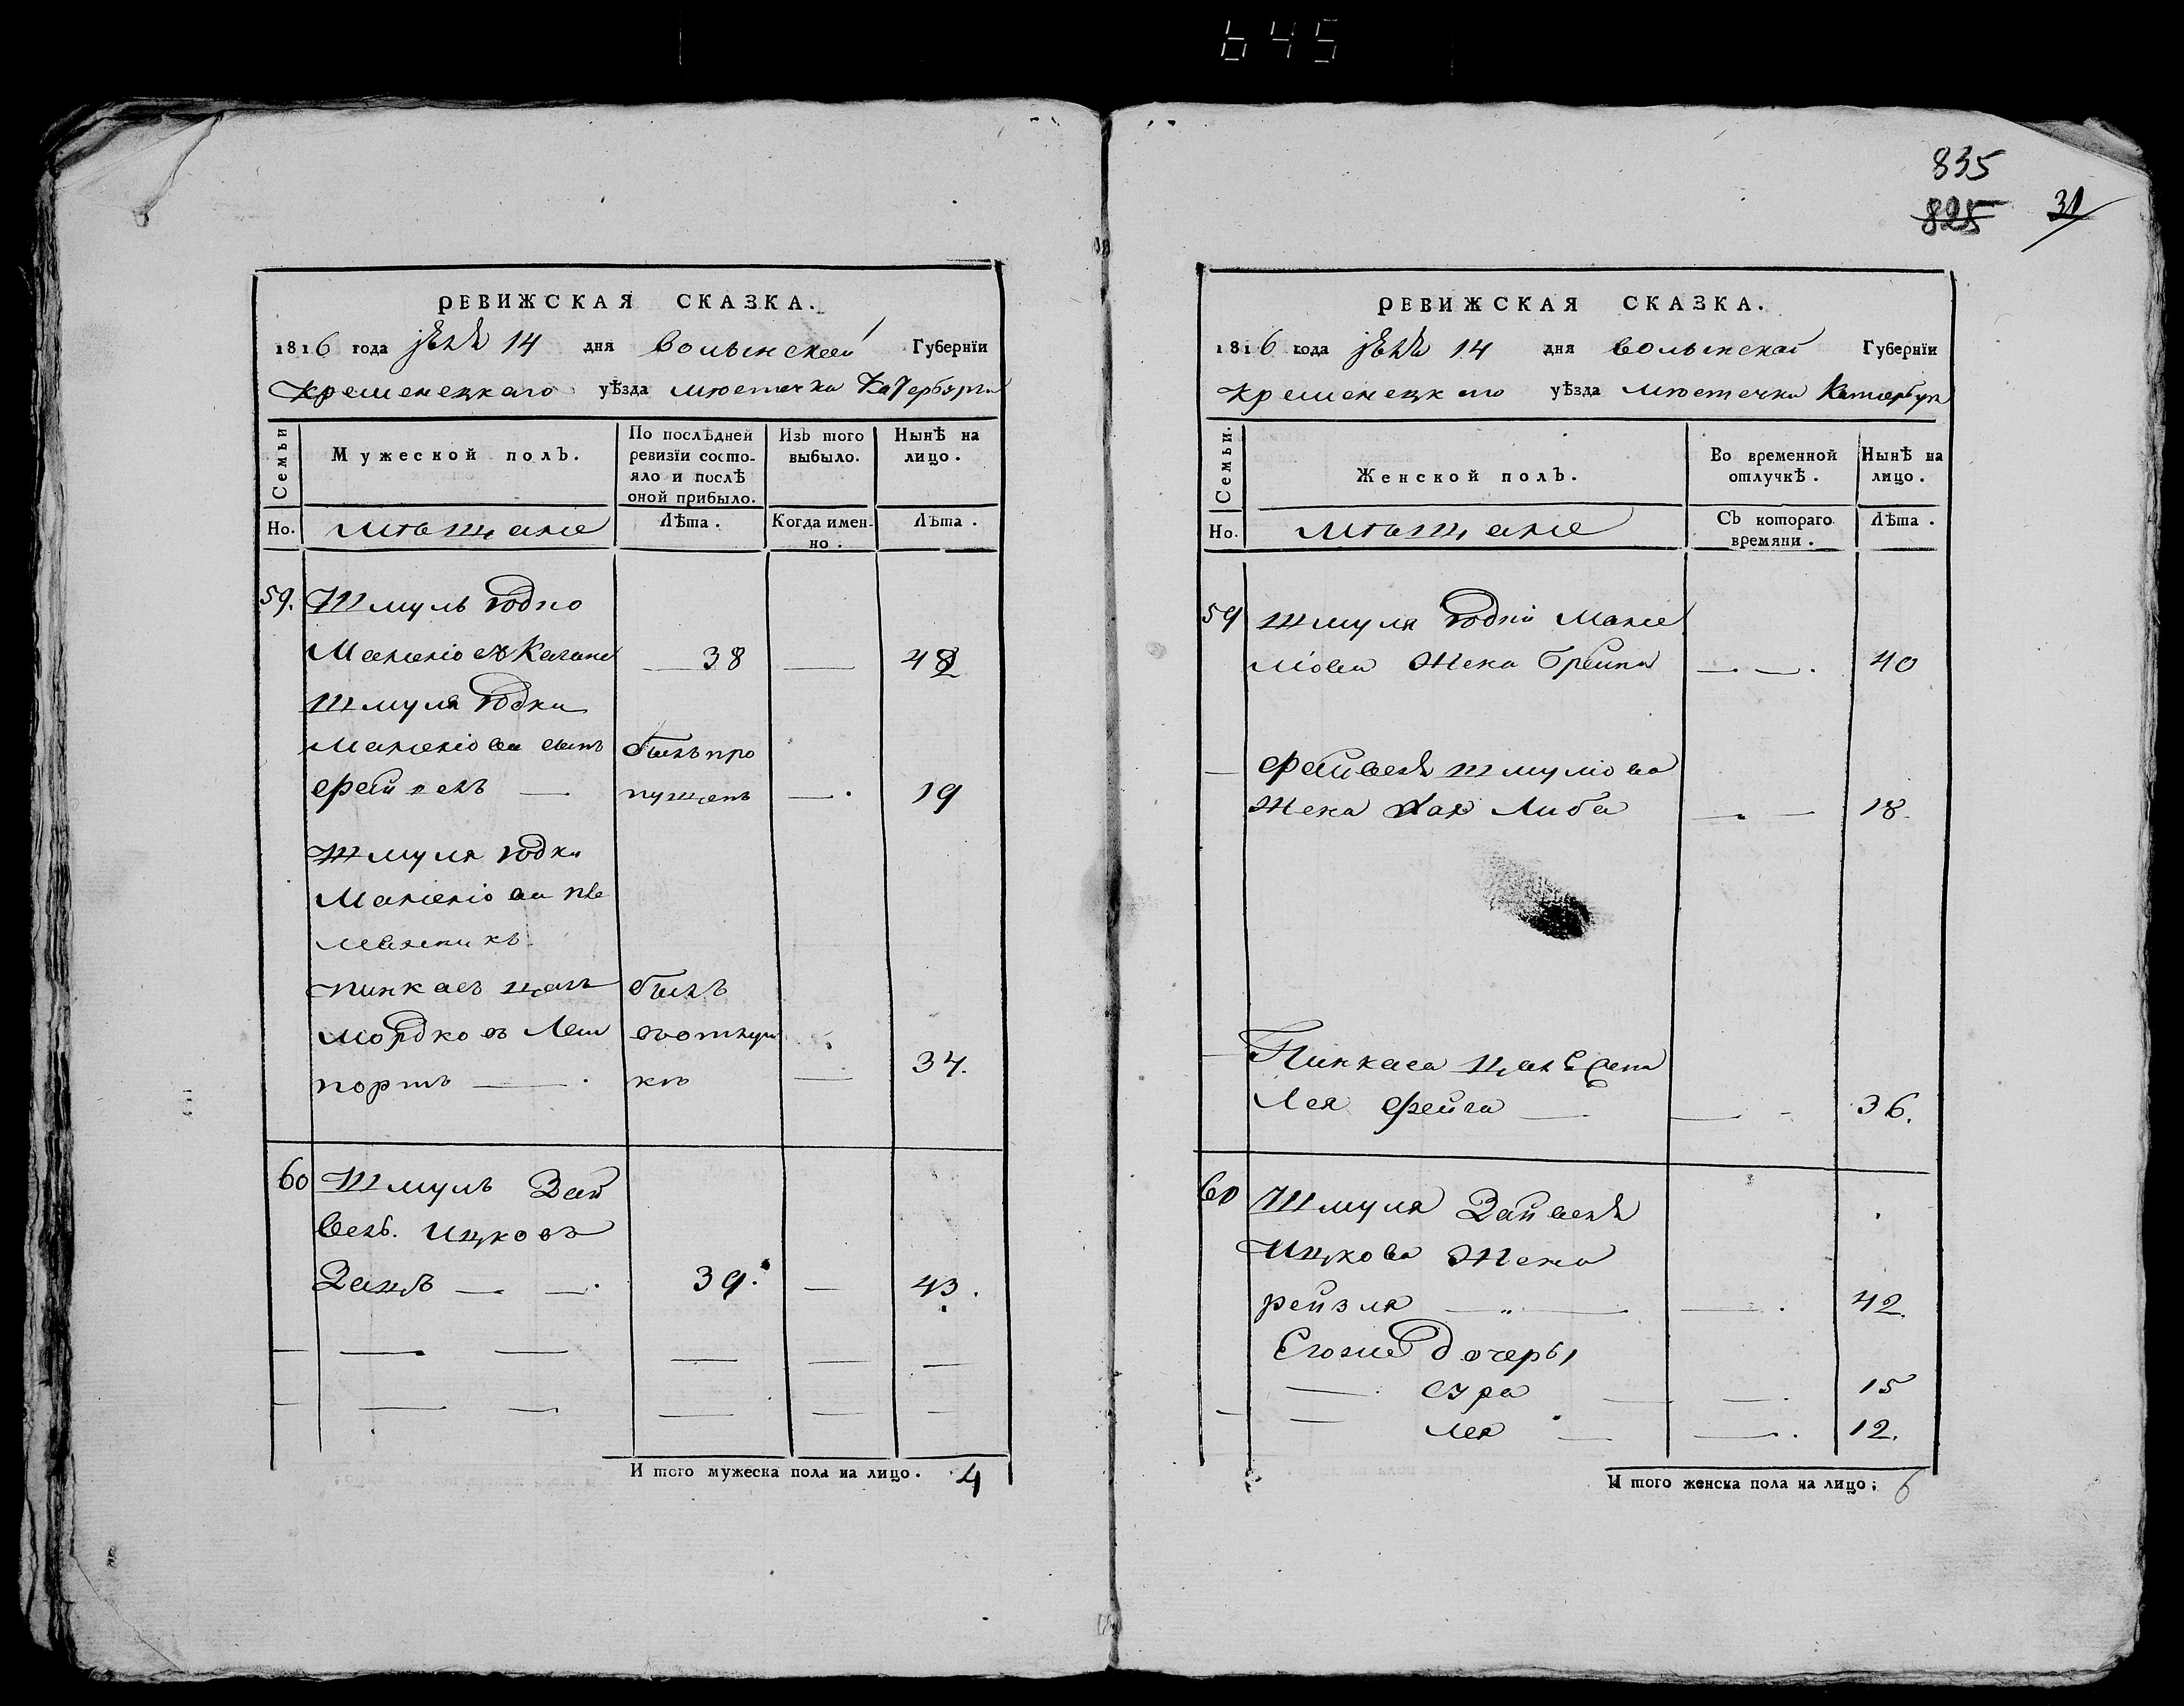 645
835
825
31
РЕВИЖСКАЯ СКАЗКА.
1816 года 14 дня Волынской Губерніи
Кременецкаго уѣзда мѣстечка Катербурга
Семьи
Мужеской полъ.
По послѣдней ревизіи состо-
яло и послѣ
оной прибыло.
Изъ того
выбыло.
Нынѣ на
лицо.
Но.
мѣщане
Лѣта.
Когда имен-
но.
Лѣта.
59. Шмуль Іодко
38 — 48
Шмуля Іодки
сынъ былъ про
пущенъ — 19
Шмуля Іодки
пле
мянникъ
Пинкасъ былъ
Мордковъ Леи вотлуч
портъ — кѣ — 34.
60 Шмуль Зей
вель Ицковъ
39. — 43.
И того мужеска пола на лицо. 4
РЕВИЖСКАЯ СКАЗКА.
1816 года 14 дня Волынской Губерніи
Кременецкаго уѣзда мѣстечка Катербурга
Семьи.
Женской полъ.
Во временной
отлучкѣ.
Нынѣ на
лицо.
Но.
мѣщане
Съ котораго
времяни.
Лѣта.
59 Шмуля Іодки
жена — 40
Шмуліова
жена Хая Либа — 18.
Пинкаса
Лея Фейга — 36.
60 Шмуля Зайвеля
Ицкова жена
рейзля — 42
Егоже дочеры
— сура — 15
— лея — 12.
И того женска пола на лицо: 6